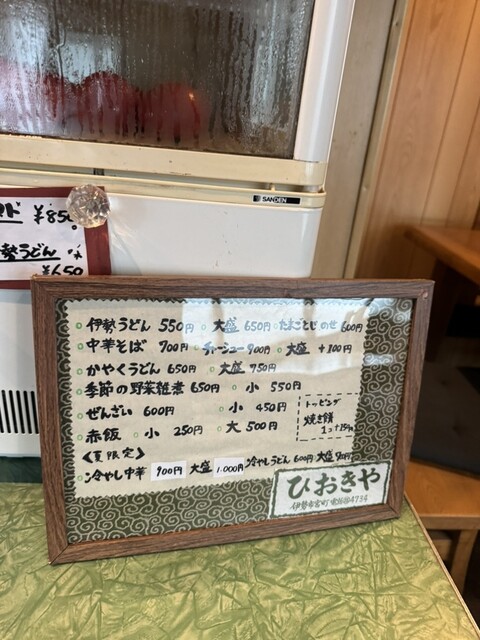 SANDEN
¥850
勢うどん
¥650
○ 伊勢うどん 550円 ○ 大盛 650円 ○ たまごとじのせ 600円
○ 中華そば 700円 チャーシュー 900円 ○ 大盛 +100円
○ かやくうどん 650円 ○ 大盛 750円
○ 季節の野菜雑煮 650円 ○ 小 550円
○ ぜんざい 600円 ○ 小 450円
○ 赤飯 ○ 小 250円 ○ 大 500円
トッピング
焼き餅
1コ+150円
《夏限定》
○ 冷やし中華 900円 大盛 1.000円 冷やしうどん 600円 大盛
ひおきや
伊勢市宮町 電話㉘4734